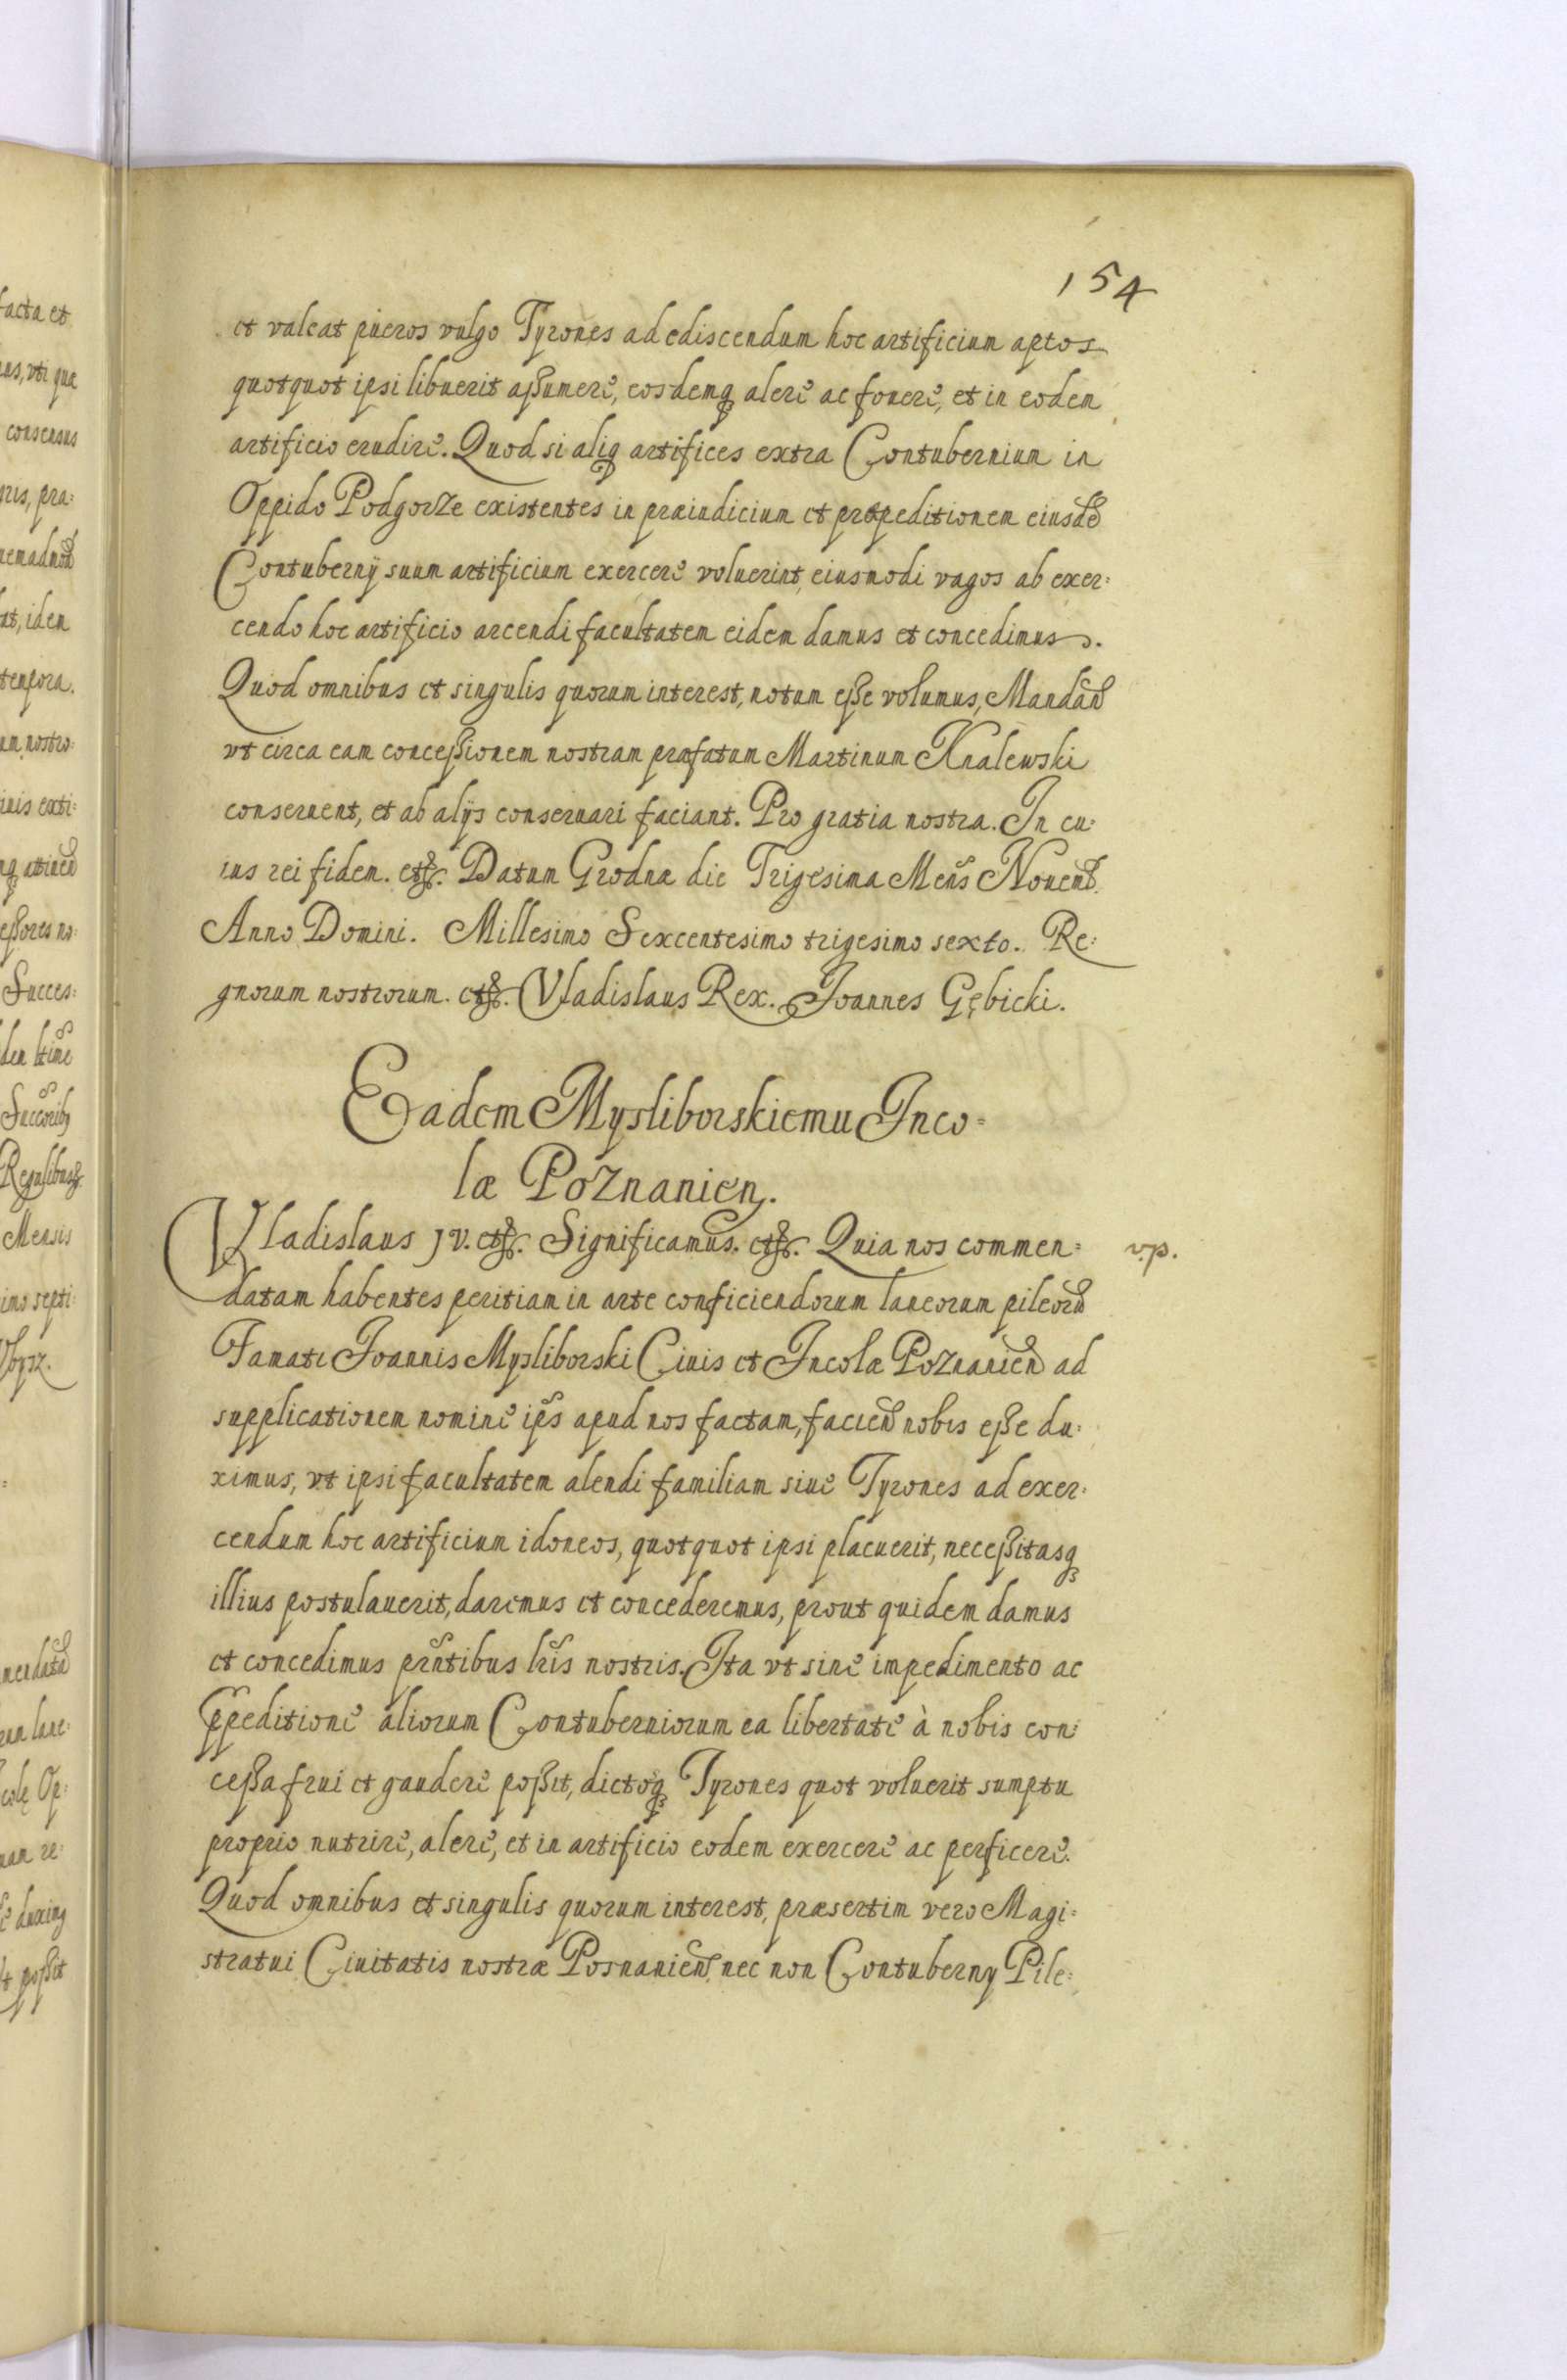 154
et valeat pueros vulgo Tyrones ad ediscendum hoc artificium aptos
quotquot ipsi libuerit aßumere, eosdemq alere ac fouere, et in eodem
artificio erudire. Quod si aliq artifices extra Contubernium in
Oppido Podgorze existentes in praeiudicium et praepeditionem eiusdē
Contubernÿ suum artificium exercere voluerint, eiusmodi vagos ab exer=
cendo hoc artificio arcendi facultatem eidem damus et concedimus.
Quod omnibus et singulis quorum interest, notum eße volumus, Mandań
vt circa eam conceßionem nostram præfatum Martinum Knalewski
conseruent, et ab alÿs conseruari faciant. Pro gratia nostra. In cu=
ius rei fidem. etc. Datum Grodnæ die Trigesima Mens Nouemb.
Anno Domini. Millesimo Sexcentesimo trigesimo sexto. Re=
gnorum nostrorum. etc. Vladislaus Rex. Joannes Gębicki.
Eadem Mysliborskiemu Inco=
læ Poznanien.
Vladislaus JV. etc. Significamus. etc. Quia nos commen=
v.p.
datam habentes peritiam in arte conficiendorum laneorum pileorū
Famati Joannis Mysliborski Ciuis et Incolæ Poznanień ad
supplicationem nomine ips apud nos factam, facień nobis eße du=
ximus, vt ipsi facultatem alendi familiam siue Tyrones ad exer=
cendum hoc artificium idoneos, quotquot ipsi placuerit, neceßitasq
illius postulauerit, daremus et concederemus, prout quidem damus
et concedimus prntibus lris nostris. Ita vt sine impedimento ac
ppeditione aliorum Contuberniorum ea libertate à nobis con=
ceßa frui et gaudere poßit, dictoq Tyrones quot voluerit sumptu
proprio nutrire, alere, et in artificio eodem exercere ac perficere.
Quod omnibus et singulis quorum interest, præsertim vero Magi=
stratui Ciuitatis nostræ Posnanień, nec non Contuberny Pile=